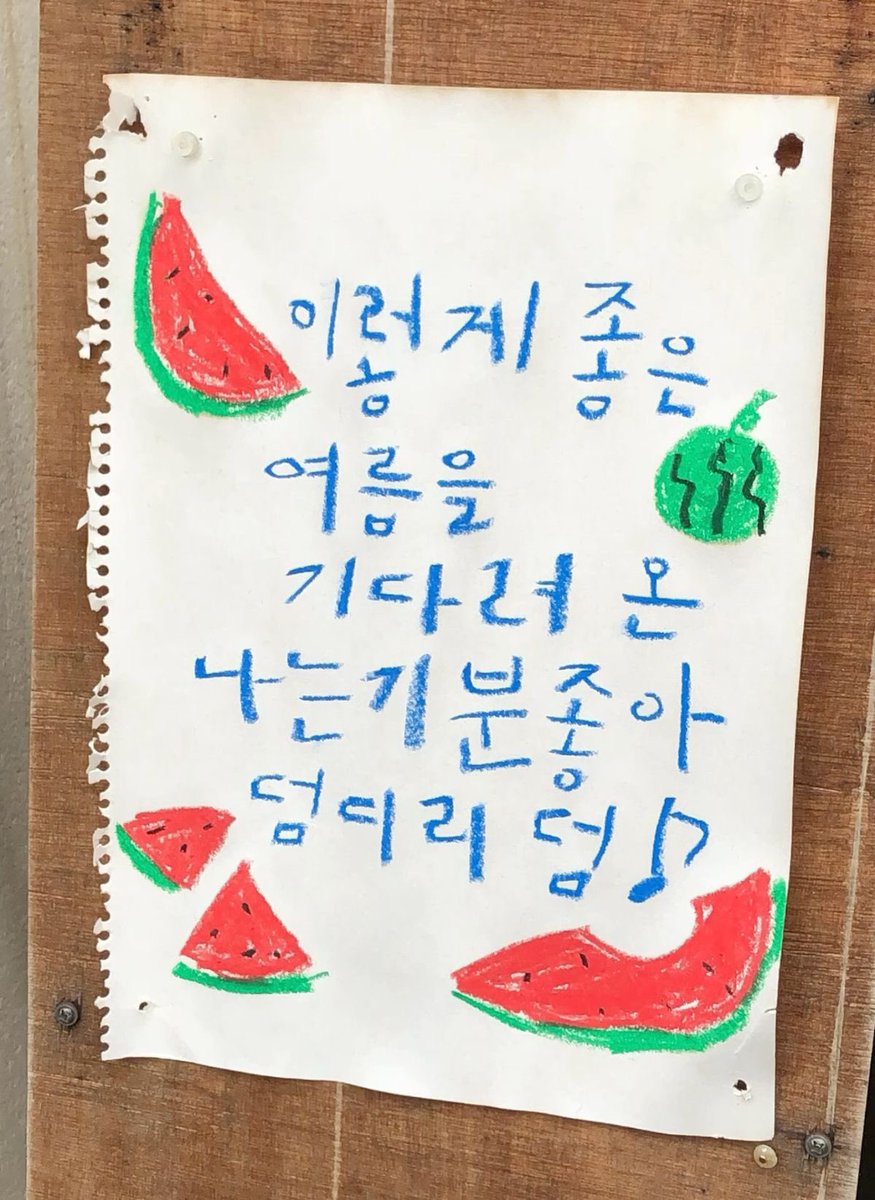 이렇게 좋은
여름을
기다려 온
나는기분좋아
덤디리덤♪